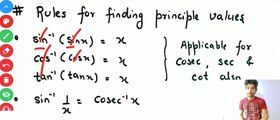 # Rules for finding principle values
• sin⁻¹ (sinx) = x
cos⁻¹ (cosx) = x
tan⁻¹ (tanx) = x
Applicable for
cosec, sec &
cot also
• sin⁻¹ 1/x = cosec⁻¹x